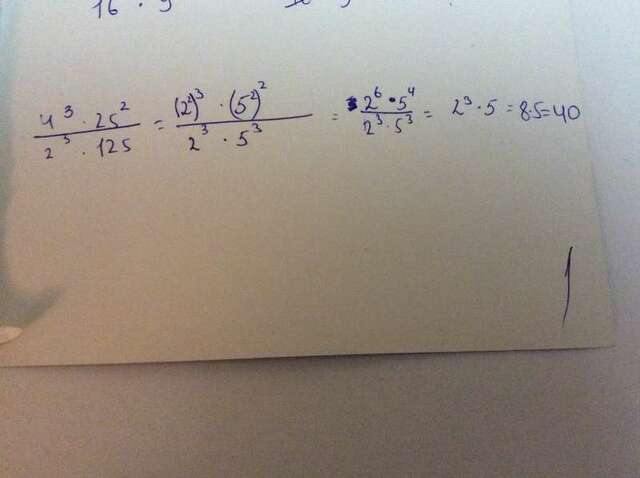 16 · 9
4³ · 25² / 2³ · 125 = (2²)³ · (5²)² / 2³ · 5³ = 2⁶ · 5⁴ / 2³ · 5³ = 2³ · 5 = 8·5=40